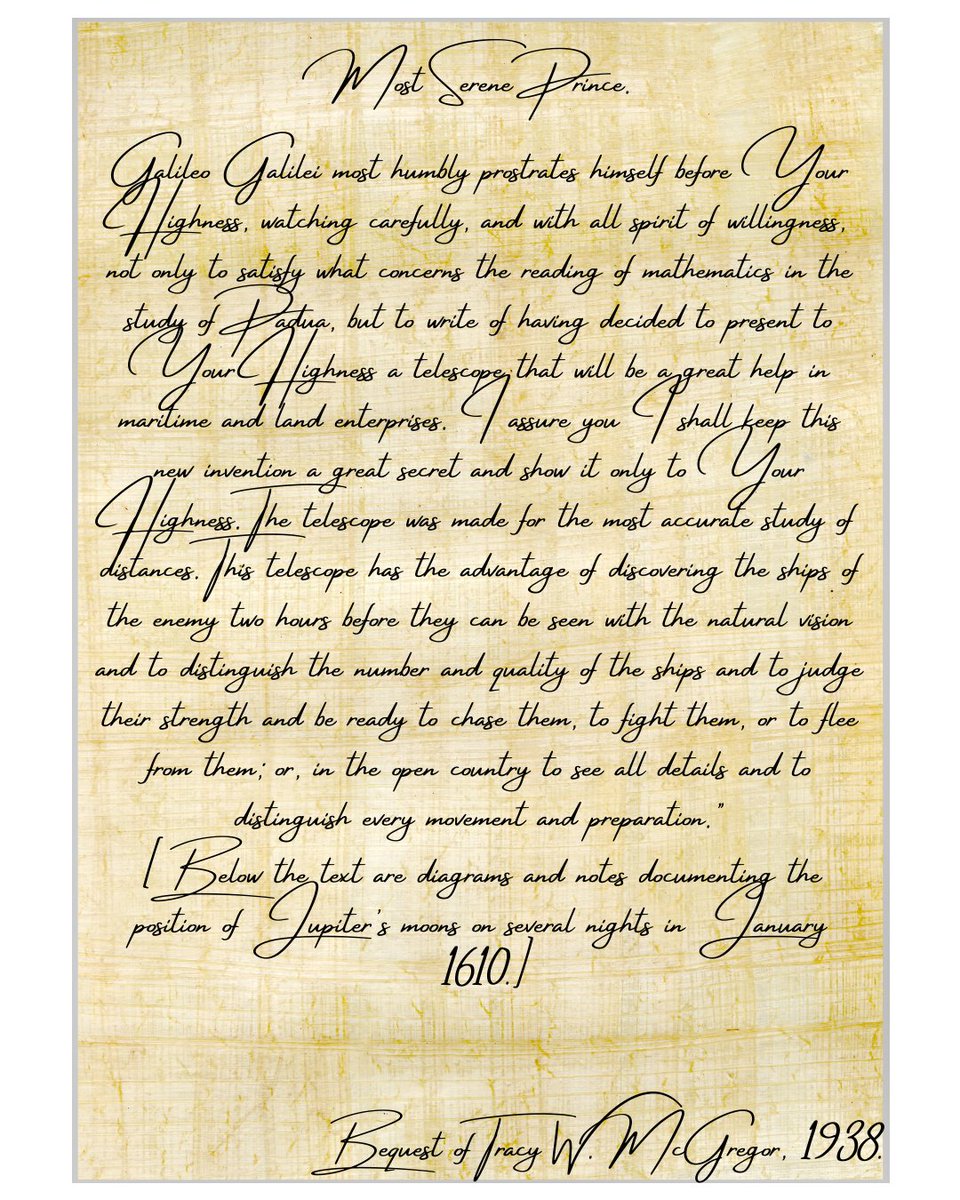 Most Serene Prince.
Galileo Galilei most humbly prostrates himself before Your
Highness, watching carefully, and with all spirit of willingness,
not only to satisfy what concerns the reading of mathematics in the
study of Padua, but to write of having decided to present to
Your Highness a telescope that will be a great help in
maritime and land enterprises. I assure you I shall keep this
new invention a great secret and show it only to Your
Highness. The telescope was made for the most accurate study of
distances. This telescope has the advantage of discovering the ships of
the enemy two hours before they can be seen with the natural vision
and to distinguish the number and quality of the ships and to judge
their strength and be ready to chase them, to fight them, or to flee
from them; or, in the open country to see all details and to
distinguish every movement and preparation."
[Below the text are diagrams and notes documenting the
position of Jupiter's moons on several nights in January
1610.]
Bequest of Tracy W. McGregor, 1938.